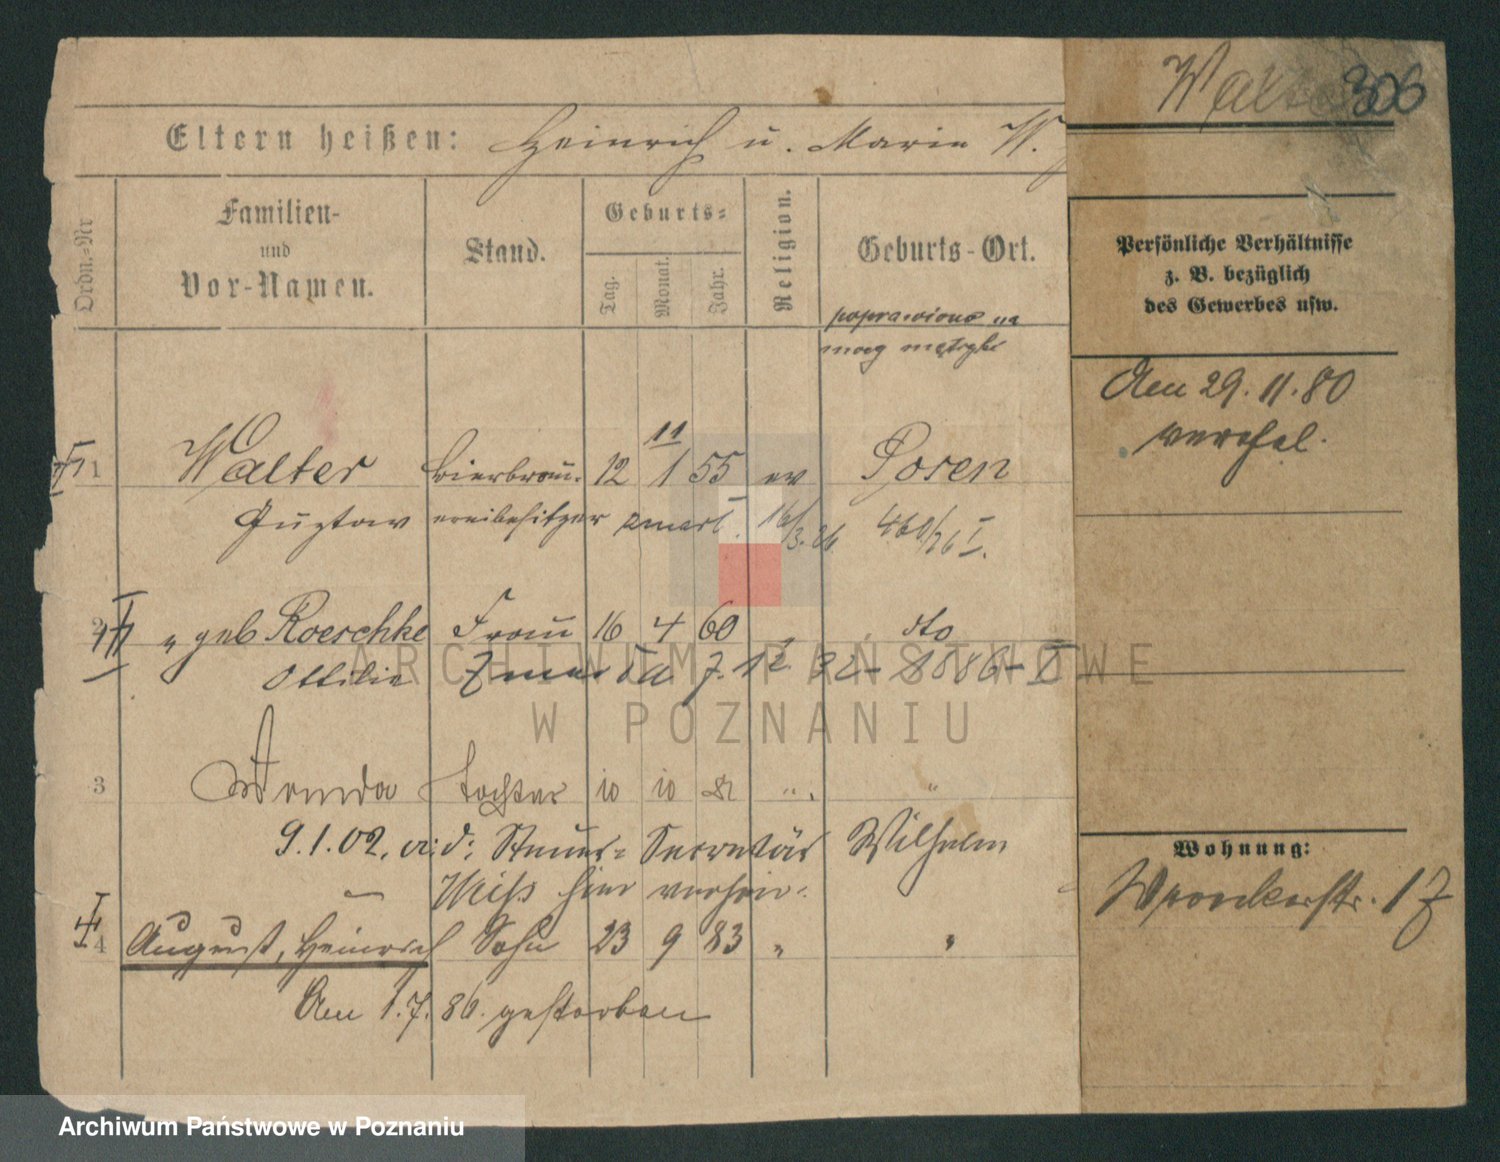 Walter 306
Eltern heißen: Heinrich u. Marie W.
Ordn.-Nr
Familien-
und
Vor-Namen.
Stand.
Geburts-
Tag.
Monat.
Jahr.
Religion.
Geburts-Ort.
poprawiono na
mocy metryki
Persönliche Verhältnisse
z. B. bezüglich
des Gewerbes usw.
Am 29.11.80
verehel.
11
1 Walter Bierbrau- 12 1 55 ev Posen
Gustav ereibesitzer zmarł 16/3.26 460/26 I.
2 " geb Roeschke Frau 16 4 60 " dto
Ottilie 1886
3 Wanda Tochter 10 10 81 " "
9.1.02. a. d. Steuer-Secretär Wilhelm
Weiß hier verhei-
4 August, Heinrich Sohn 23 9 83 " "
Am 1.7.86. gestorben
Wohnung:
Wronkerstr. 17
ARCHIWUM PAŃSTWOWE
W POZNANIU
Archiwum Państwowe w Poznaniu